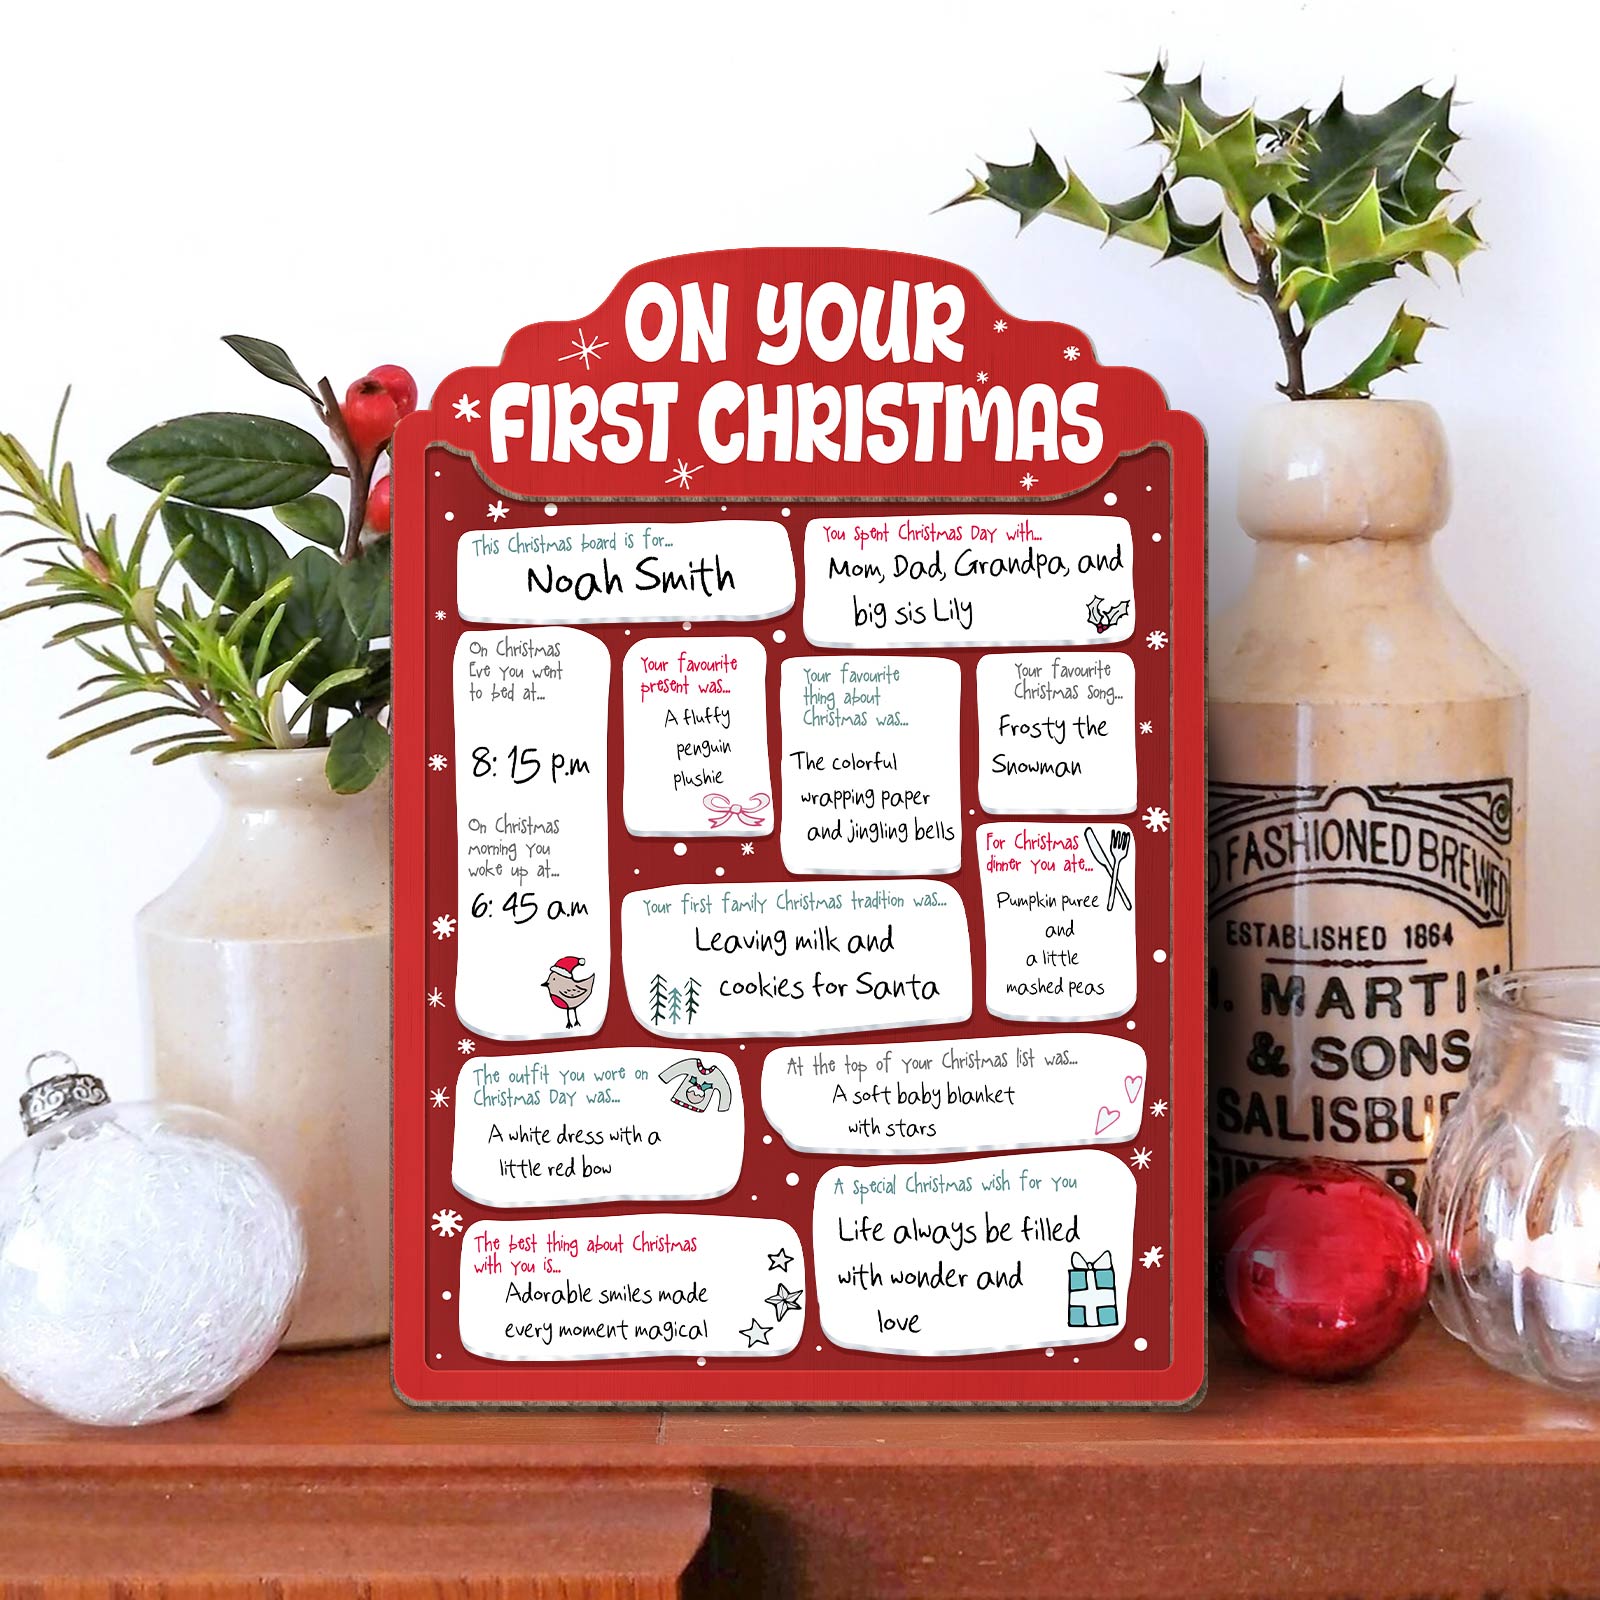 ON YOUR
FIRST CHRISTMAS
This Christmas board is for...
Noah Smith
You spent Christmas Day with...
Mom, Dad, Grandpa, and
big sis Lily
On Christmas
Eve you went
to bed at...
8: 15 p.m
On Christmas
morning you
woke up at...
6: 45 a.m
Your favourite
present was...
A fluffy
penguin
plushie
Your favourite
thing about
Christmas was...
The colorful
wrapping paper
and jingling bells
Your favourite
Christmas song...
Frosty the
Snowman
For Christmas
dinner you ate...
Pumpkin puree
and
a little
mashed peas
Your first family Christmas tradition was...
Leaving milk and
cookies for Santa
The outfit you wore on
Christmas Day was...
A white dress with a
little red bow
At the top of your Christmas list was...
A soft baby blanket
with stars
The best thing about Christmas
with you is...
Adorable smiles made
every moment magical
A special Christmas wish for you
Life always be filled
with wonder and
love
FASHIONED BREWED
ESTABLISHED 1864
MARTI
& SONS
SALISBU